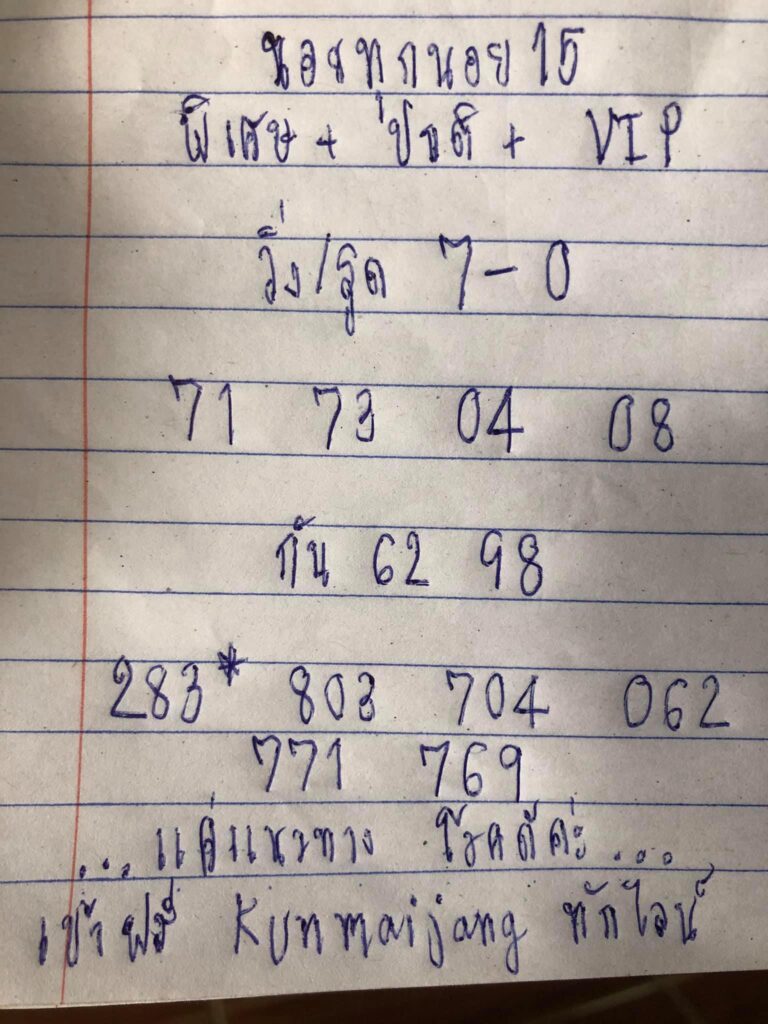 ฮอยทุกนอย 15
พิเศษ + ปกติ + VIP
วิ่ง/รูด 7-0
71 73 04 08
กัน 62 98
283* 803 704 062
771 769
...แค่แนวทาง โชคดีค่ะ...
เข้าฟรี Kunmaijang ทักไลน์